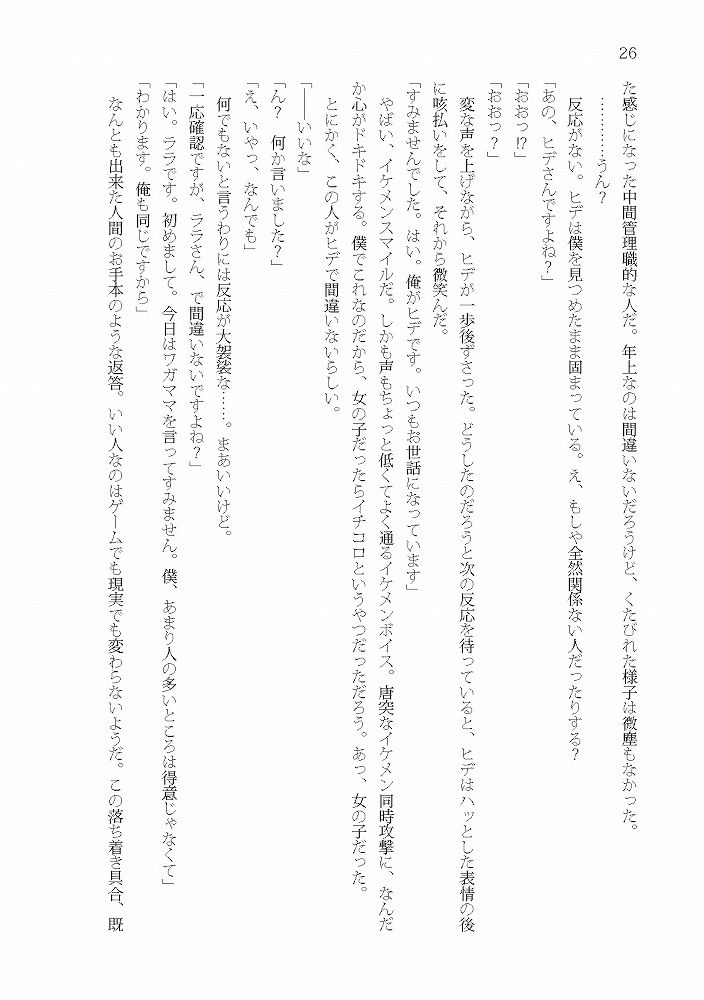 26
た感じになった中間管理職的な人だ。年上なのは間違いないだろうけど、くたびれた様子は微塵もなかった。
…………うん？
反応がない。ヒデは僕を見つめたまま固まっている。え、もしや全然関係ない人だったりする？
「あの、ヒデさんですよね？」
「おおっ!?」
「おおっ？」
変な声を上げながら、ヒデが一歩後ずさった。どうしたのだろうと次の反応を待っていると、ヒデはハッとした表情の後
に咳払いをして、それから微笑んだ。
「すみませんでした。はい。俺がヒデです。いつもお世話になっています」
やばい、イケメンスマイルだ。しかも声もちょっと低くてよく通るイケメンボイス。唐突なイケメン同時攻撃に、なんだ
か心がドキドキする。僕でこれなのだから、女の子だったらイチコロというやつだっただろう。あっ、女の子だった。
とにかく、この人がヒデで間違いないらしい。
「――いいな」
「ん？　何か言いました？」
「え、いやっ、なんでも」
何でもないと言うわりには反応が大袈裟な……。まあいいけど。
「一応確認ですが、ララさん、で間違いないですよね？」
「はい。ララです。初めまして。今日はワガママを言ってすみません。僕、あまり人の多いところは得意じゃなくて」
「わかります。俺も同じですから」
なんとも出来た人間のお手本のような返答。いい人なのはゲームでも現実でも変わらないようだ。この落ち着き具合、既